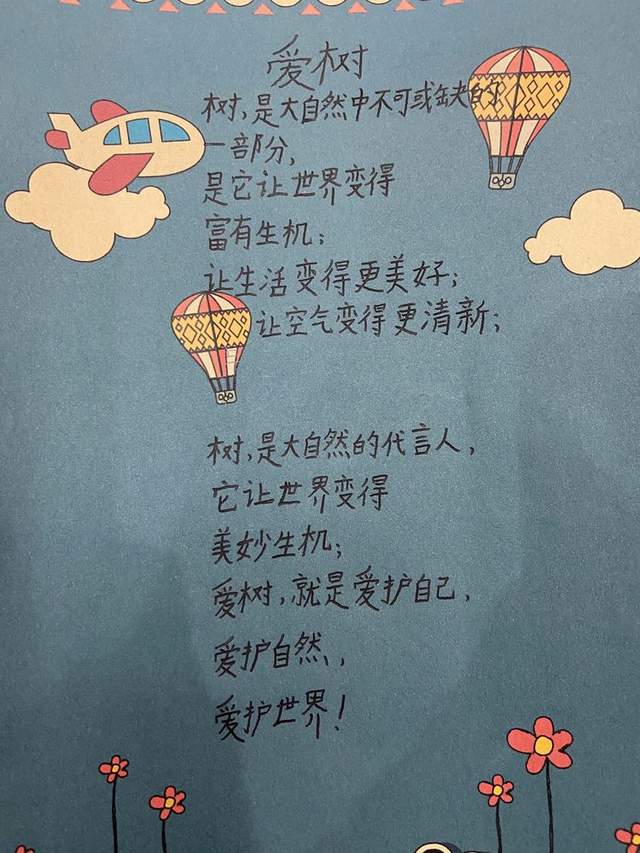 爱树
树,是大自然中不可或缺的
一部分,
是它让世界变得
富有生机;
让生活变得更美好;
让空气变得更清新;
树,是大自然的代言人,
它让世界变得
美妙生机;
爱树,就是爱护自己,
爱护自然、,
爱护世界!